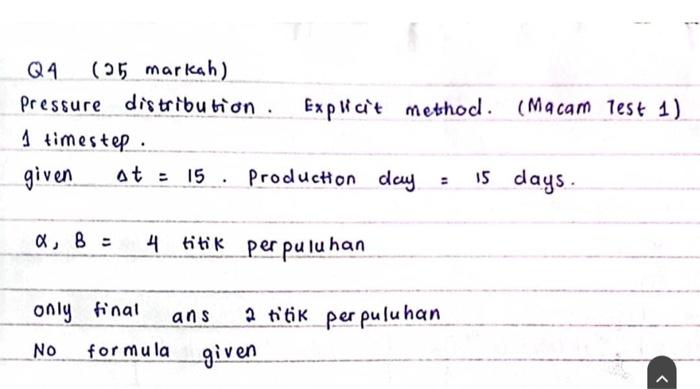 Q4 (25 markah)
Pressure distribution. Explicit method. (Macam Test 1)
1 timestep.
given Δt = 15. Production day = 15 days.
α, B = 4 titik perpuluhan
only final ans 2 titik perpuluhan
No formula given